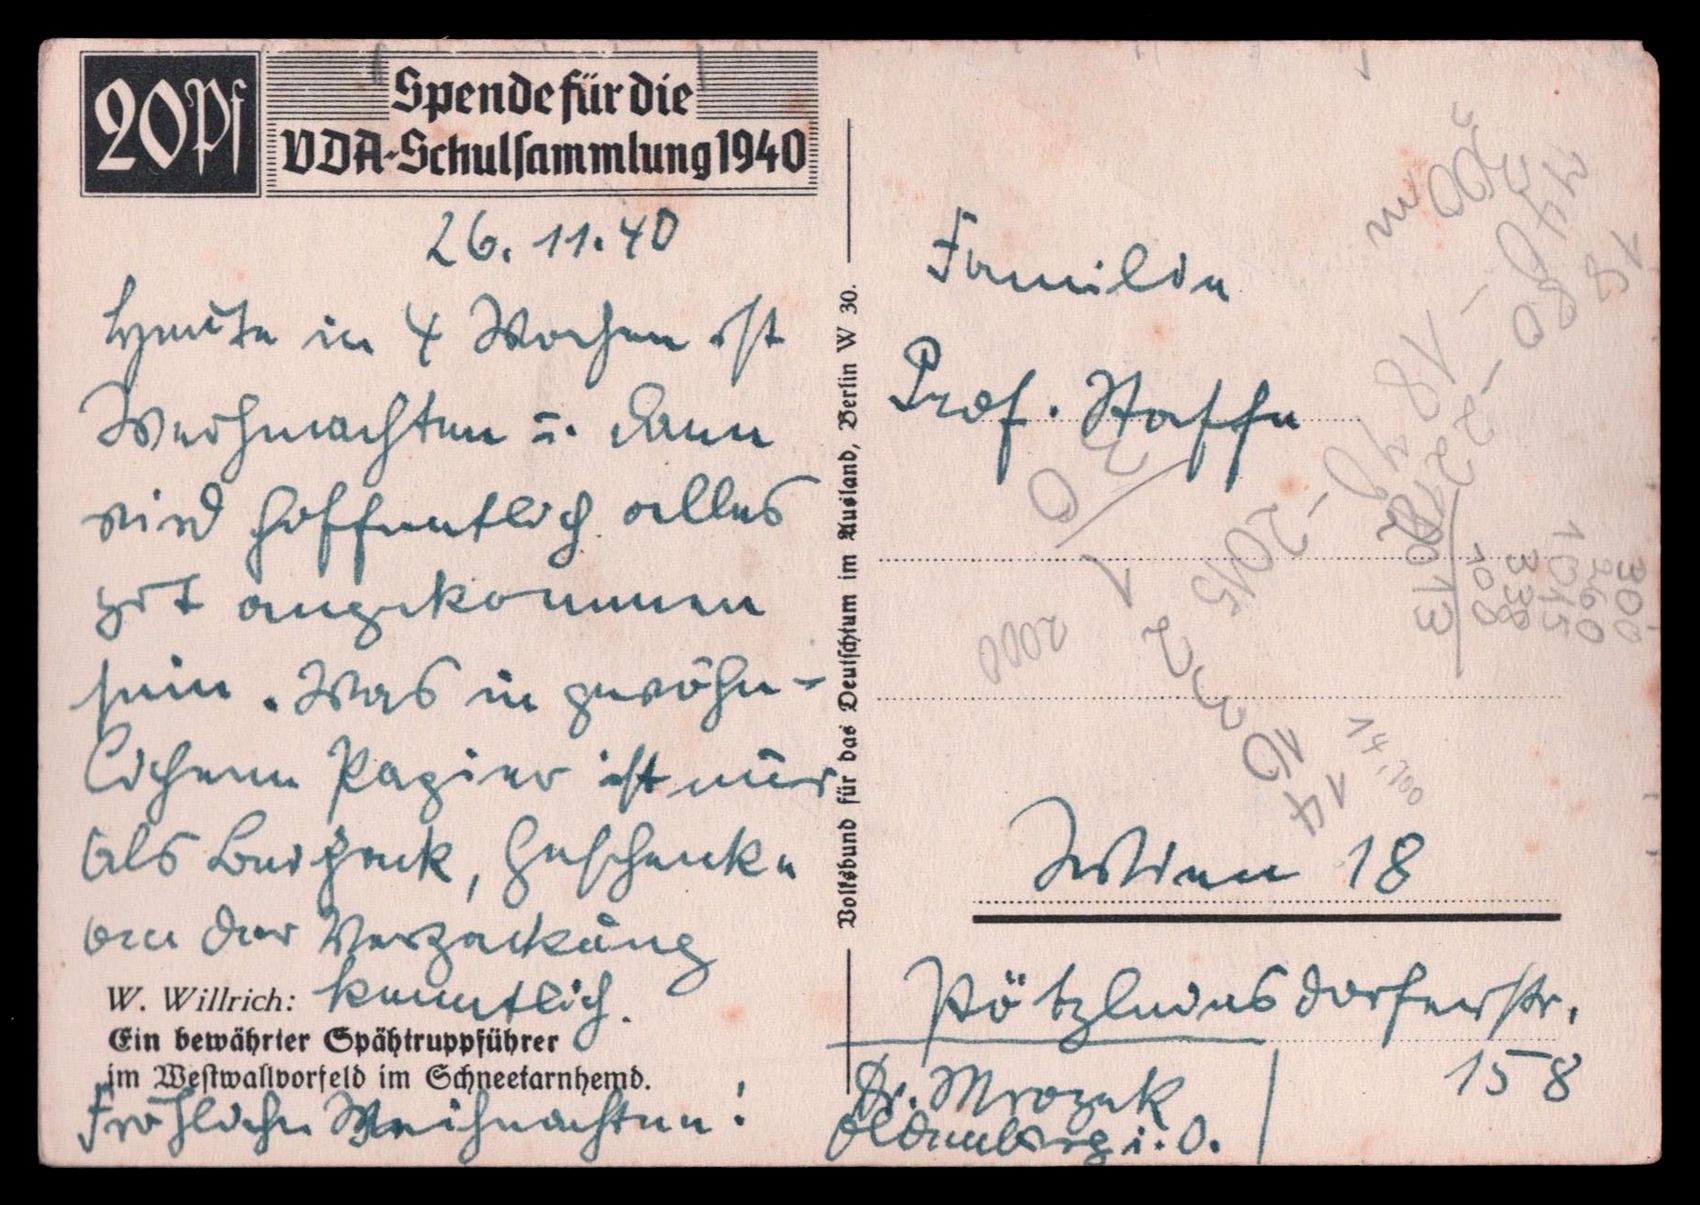 20 Pf
Spende für die
VDA-Schulsammlung 1940
26. 11. 40
Heute in 4 Wochen ist
Weihnachten u. dann
wird hoffentlich alles
gut angekommen
sein. Was in gewöhn-
lichem Papier ist nur
als Beipack, Geschenke
an der Verpackung
kenntlich.
W. Willrich:
Ein bewährter Spähtruppführer
im Westwallvorfeld im Schneetarnhemd.
Fröhliche Weihnachten!
Volksbund für das Deutschtum im Ausland, Berlin W 30.
Familie
Prof. Staffe
Wien 18
Pötzleinsdorferstr.
158
Dr. Mrozek
Oldenburg i. O.
2015
2000
14
300
260
1015
338
100
2013